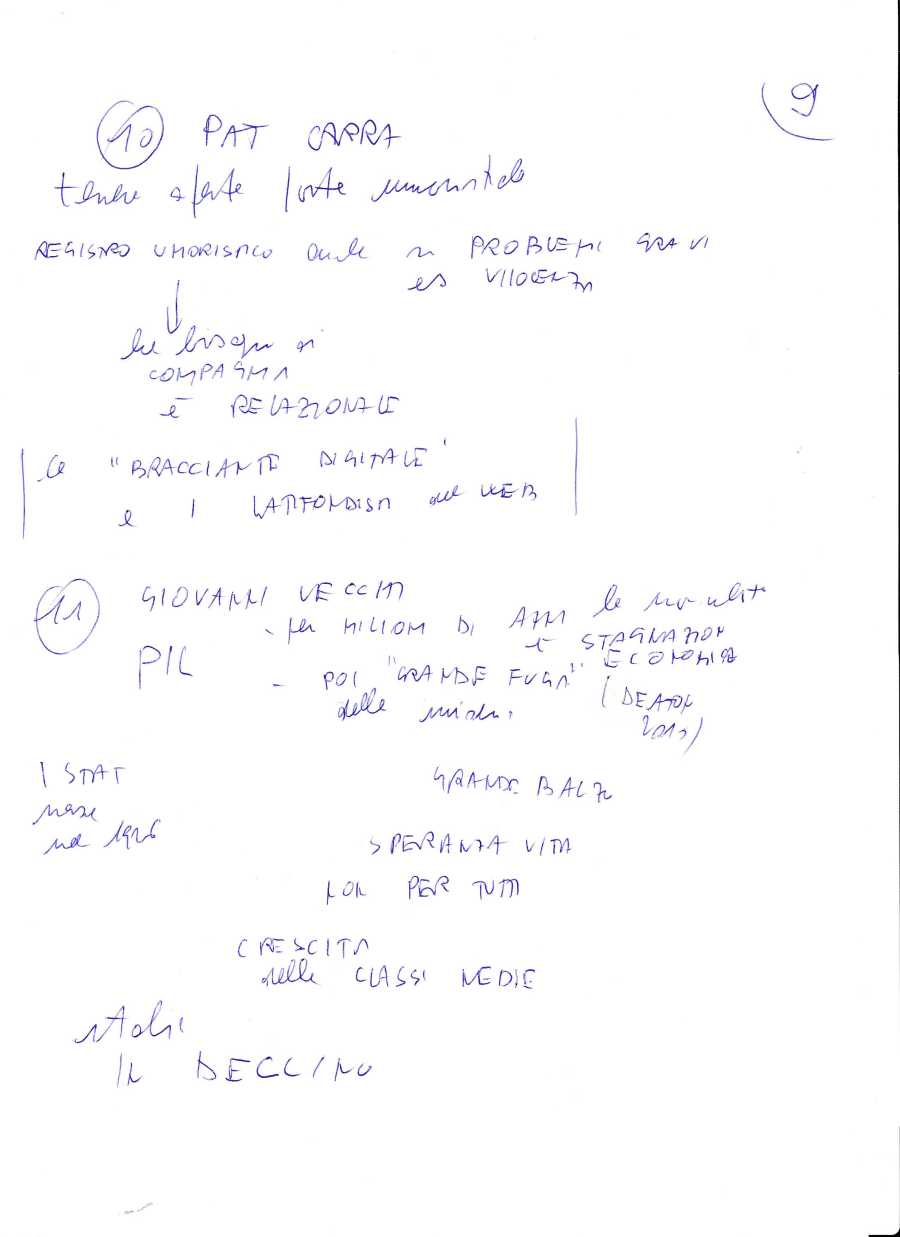 9
10 PAT CARRA
tenere aperte porte umoristiche
REGISTRO UMORISTICO anche su PROBLEMI GRAVI
es VIOLENZA
ha bisogno di
COMPAGNIA
è RELAZIONALE
"BRACCIANTE DIGITALE"
e I LATIFONDISTI del WEB
11 GIOVANNI VECCHI
- per MILIONI DI ANNI la
è STAGNAZIONE
PIL
ECONOMICA
- POI "GRANDE FUGA" (DEATON
della
ISTAT
GRANDE BALZO
nasce
nel 1926
SPERANZA VITA
NON PER TUTTI
CRESCITA
delle CLASSI MEDIE
Italia
IN DECLINO